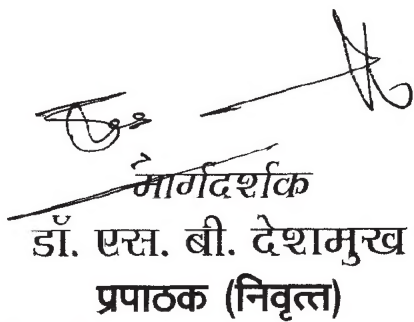 मार्गदर्शक
डॉ. एस. बी. देशमुख
प्रपाठक (निवृत्त)